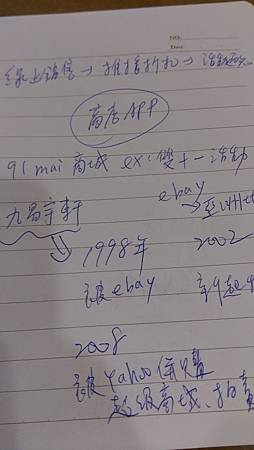 線上銷售→推播折扣→活動
商店APP
91 mai 商城 ex:雙十一活動
九易宇軒
ebay
→亞洲
1998年
2002
被ebay
2008
被Yahoo併購
超級商城、拍賣